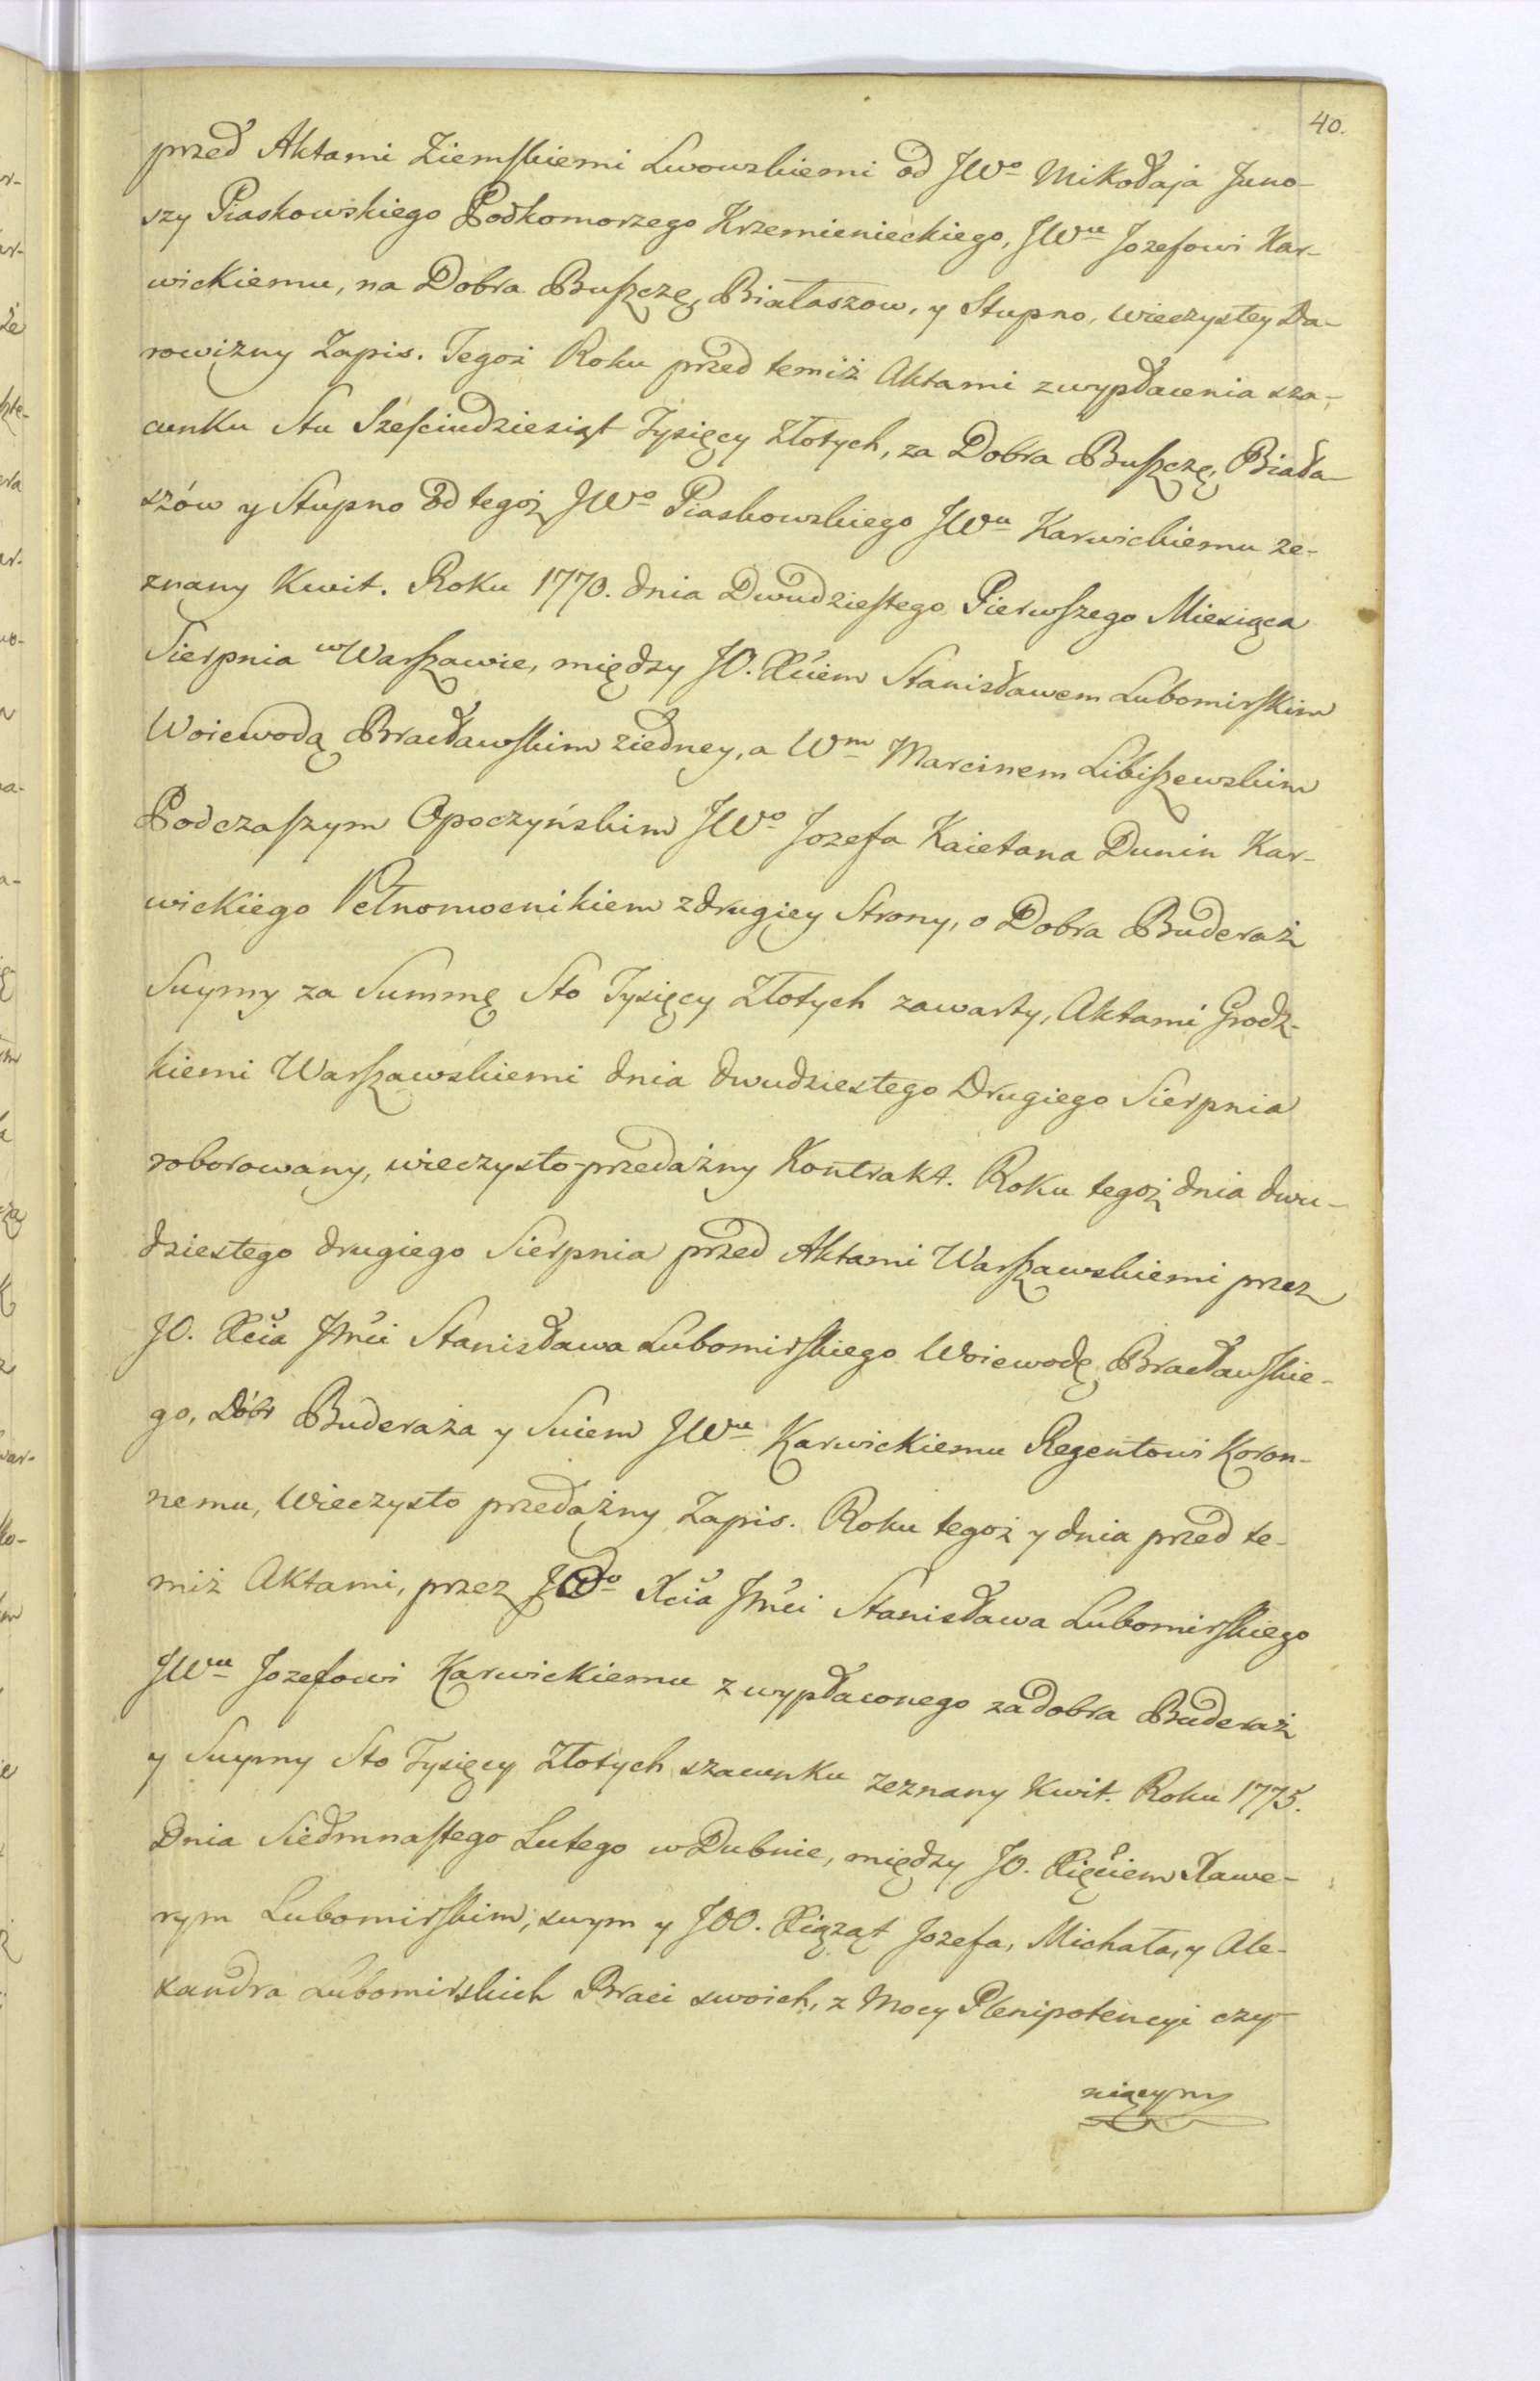 40.
przed Aktami Ziemskiemi Lwowskiemi od JWo Mikołaja Juno-
szy Piaskowskiego Podkomorzego Krzemienieckiego, JWu Jozefowi Kar-
wickiemu, na Dobra Buszczę, Białaszow, y Stupno, wieczystey Da-
rowizny Zapis. Tegoż Roku przed temiż Aktami z wypłacenia sza-
cunku Stu Sześciudziesiąt Tysięcy Złotych, za Dobra Buszczę, Biała-
szów y Stupno od tegoż JWo Piaskowskiego JWu Karwickiemu ze-
znany Kwit. Roku 1770. dnia Dwudziestego Pierwszego Miesiąca
Sierpnia w Warszawie, między JO. Xciem Stanisławem Lubomirskim
Woiewodą Bracławskim ziedney, a Wm Marcinem Libiszewskim
Podczaszym Opoczyńskim JWo Jozefa Kaietana Dunin Kar-
wickiego Pełnomocnikiem z drugiey Strony, o Dobra Buderaż
Suymy za Summę Sto Tysięcy Złotych zawarty, Aktami Grodz-
kiemi Warszawskiemi dnia dwudziestego Drugiego Sierpnia
roborowany, wieczysto-przedażny Kontrakt. Roku tegoż dnia dwu-
dziestego drugiego Sierpnia przed Aktami Warszawskiemi przez
JO. Xcia Jmci Stanisława Lubomirskiego Woiewodę Bracławskie-
go, Dóbr Buderaża y Suiem JWu Karwickiemu Regentowi Koron-
nemu, Wieczysto przedażny Zapis. Roku tegoż y dnia przed te-
miż Aktami, przez JOo Xcia Jmci Stanisława Lubomirskiego
JWu Jozefowi Karwickiemu z wypłaconego za dobra Buderaż
y Suymy Sto Tysięcy Złotych szacunku zeznany Kwit. Roku 1775.
Dnia Siedmnastego Lutego w Dubnie, między JO. Xięciem Xawe-
rym Lubomirskim, swym y JOO. Xiążąt Jozefa, Michała, y Ale-
xandra Lubomirskich Braci swoich, z Mocy Plenipotencyi czy-
niącym